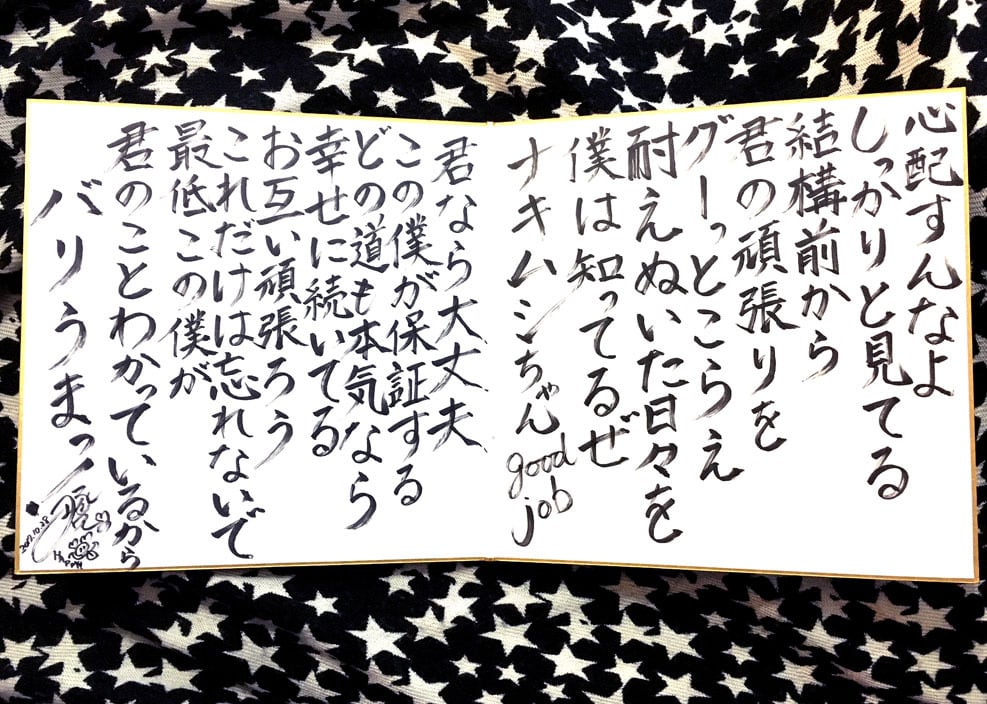 心配すんなよ
しっかりと見てる
結構前から
君の頑張りを
グーっとこらえ
耐えぬいた日々を
僕は知ってるぜ
ナキムシちゃん good job
君なら大丈夫
この僕が保証する
どの道も本気なら
幸せに続いてる
お互い頑張ろう
これだけは忘れないで
最低この僕が
君のことわかっているから
バリうまっ!
2017.10.28